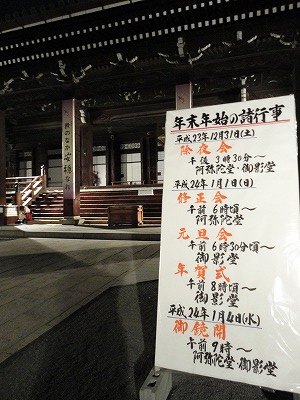 世のなか安穏なれ
年末年始の諸行事
平成23年12月31日(土)
除夜会
午後3時30分~
阿弥陀堂・御影堂
平成24年1月1日(日)
修正会
午前6時頃~
阿弥陀堂
元旦会
午前6時30分頃~
御影堂
年賀式
午前8時頃~
御影堂
平成24年1月4日(水)
御鏡開
午前9時~
阿弥陀堂・御影堂